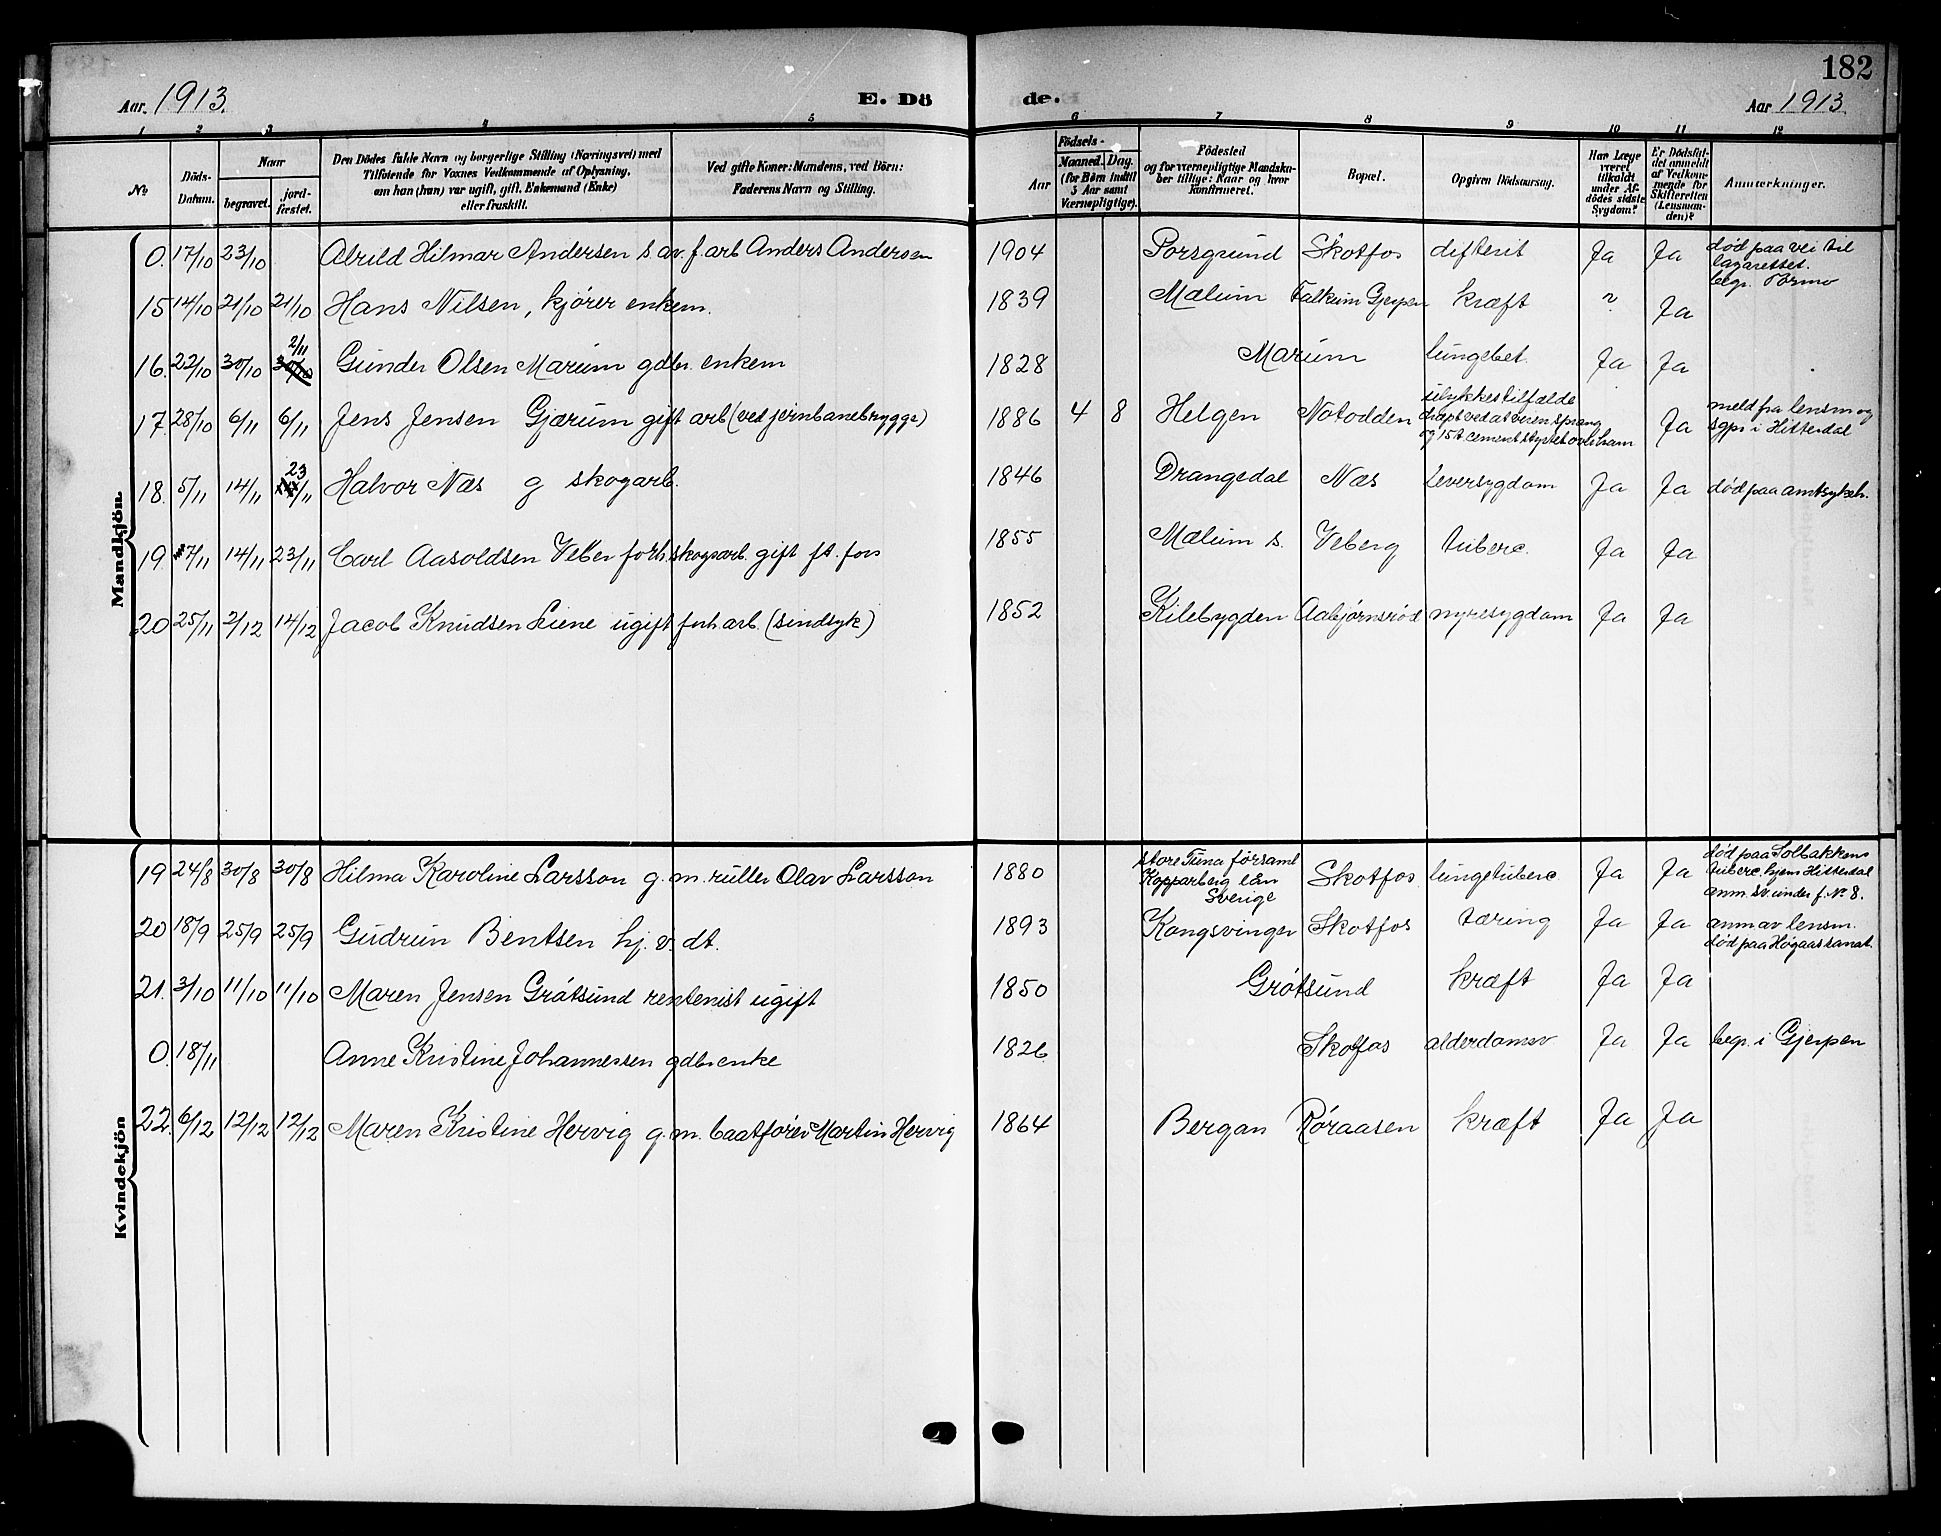 182
Aar. 1913. E. Dö de. Aar 1913
1 2 3 4 5 6 7 8 9 10 11 12
No
Döds-Datum.
Naar
begravet.
jordfæstet.
Den Dödes fulde Navn og borgerlige Stilling (Næringsvei) med
Tilföiende for Voxnes Vedkommende af Oplysning,
om han (hun) var ugift, gift, Enkemand (Enke)
eller fraskilt.
Ved gifte Koner: Mandens, ved Börn:
Faderens Navn og Stilling.
Födsels-
Aar
Maaned. Dag.
(for Børn indtil
5 Aar samt
Værnepligtige).
Födested
og for værnepligtige Mandskaber
tillige: Naar og hvor
konfirmeret.
Bopæl.
Opgiven Dödsaarsag.
Har Læge
været
tilkaldt
under Afdödes
sidste
Sygdom?
Er Dödsfaldet
anmeldt
af Vedkommende
for
Skifteretten
(Lensmanden)?
Anmærkninger.
Mandkjön
0. 17/10 23/10 Alvild Hilmar Andersen s av f. arb Anders Andersen 1904 Porsgrund Skotfos difterit Ja Ja død paa vei til lazarettet. begr. Tørmo
15 14/10 21/10 21/10 Hans Nilsen, kjører enkem. 1839 Mælum Falkum Gjerpen kræft ? Ja
16. 22/10 30/10 30/10 2/11 Gunder Olsen Marum gdbr. enkem 1828 Marum lungebet. Ja Ja
17. 28/10 6/11 6/11 Jens Jensen Gjærum gift arb (ved jernbanebrygge) 1886 4 8 Helgen Notodden ulykkestilfælde dræpt ved at veien sprang og 15 t. cement styrtet over ham Ja meld fra lensm og sgpr i Hitterdal
18. 5/11 14/11 23/11 Halvor Næs g skogarb. 1846 Drangedal Næs Leversygdom Ja Ja død paa amtsykeh.
19 7/11 14/11 23/11 Carl Aasoldsen Veber forh. skogsarb. gift ft. fors 1855 Mælum s. Veberg tuberc. Ja Ja
20 25/11 2/12 14/12 Jacob Knudsen Liene ugift forh. arb. (sindsyk) 1852 Kilebygden Aabjørnsrød nyresygdom Ja Ja
Kvindekjön
19 24/8 30/8 30/8 Hilma Karoline Larsson g. m. ruller Olav Larsson 1880 store Tuna församl Kopparberg län Sverige Skotfos lungetuberc. Ja Ja død paa Solbakkens tuberc. hjem Hitterdal anm. sv. under f. No 8.
20 18/9 25/9 25/9 Gudrun Bentsen hj. v. dt. 1893 Kongsvinger Skotfos tæring Ja Ja anm av lensm. død paa Høgaas sanat.
21. 3/10 11/10 11/10 Maren Jensen Grøtsund rentenist ugift 1850 Grøtsund kræft Ja Ja
0. 18/11 Anne Kristine Johannessen gdbr enke 1826 Skotfos alderdomsv Ja Ja begr. i Gjerpen
22. 6/12 12/12 12/12 Maren Kristine Hervig g. m. baatfører Martin Hervig 1864 Bergan Røraasen kræft Ja Ja